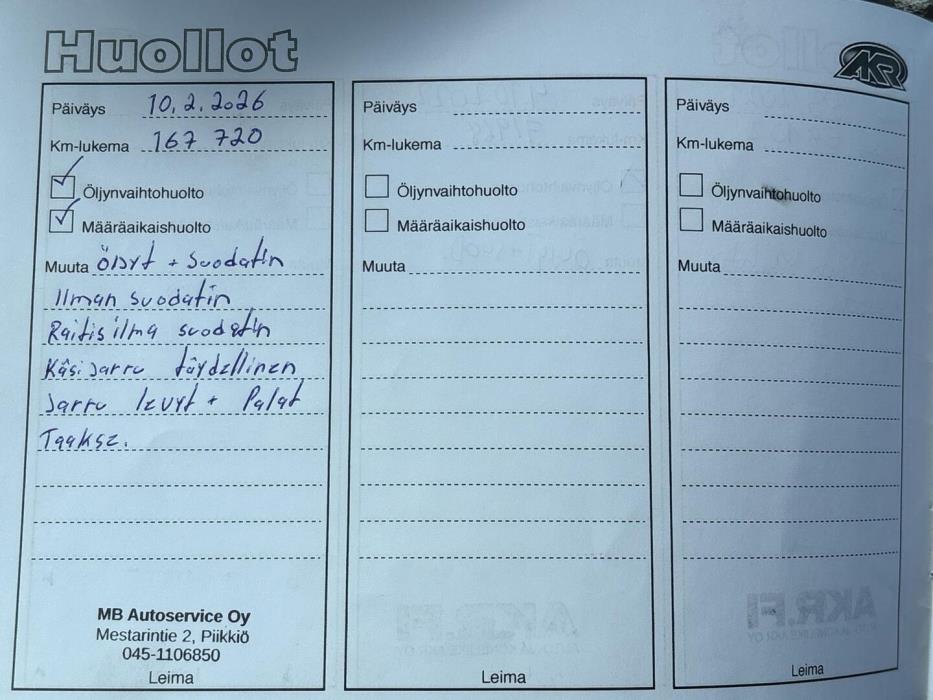 Huollot
AKR
Päiväys 10.2.2026
Km-lukema 167 720
Öljynvaihtohuolto
Määräaikaishuolto
Muuta Öljyt + Suodatin
Ilman suodatin
Raitisilma suodatin
Käsijarru täydellinen
Jarru levyt + Palat
Taakse.
MB Autoservice Oy
Mestarintie 2, Piikkiö
045-1106850
Leima
Päiväys
Km-lukema
Öljynvaihtohuolto
Määräaikaishuolto
Muuta
Leima
Päiväys
Km-lukema
Öljynvaihtohuolto
Määräaikaishuolto
Muuta
Leima